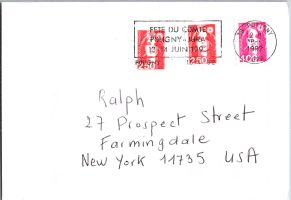 FETE DU COMTE
POLIGNY - JURA
13-14 JUIN
2,50
2,50
1992
Ralph
27 Prospect Street
Farmingdale
New York 11735 USA